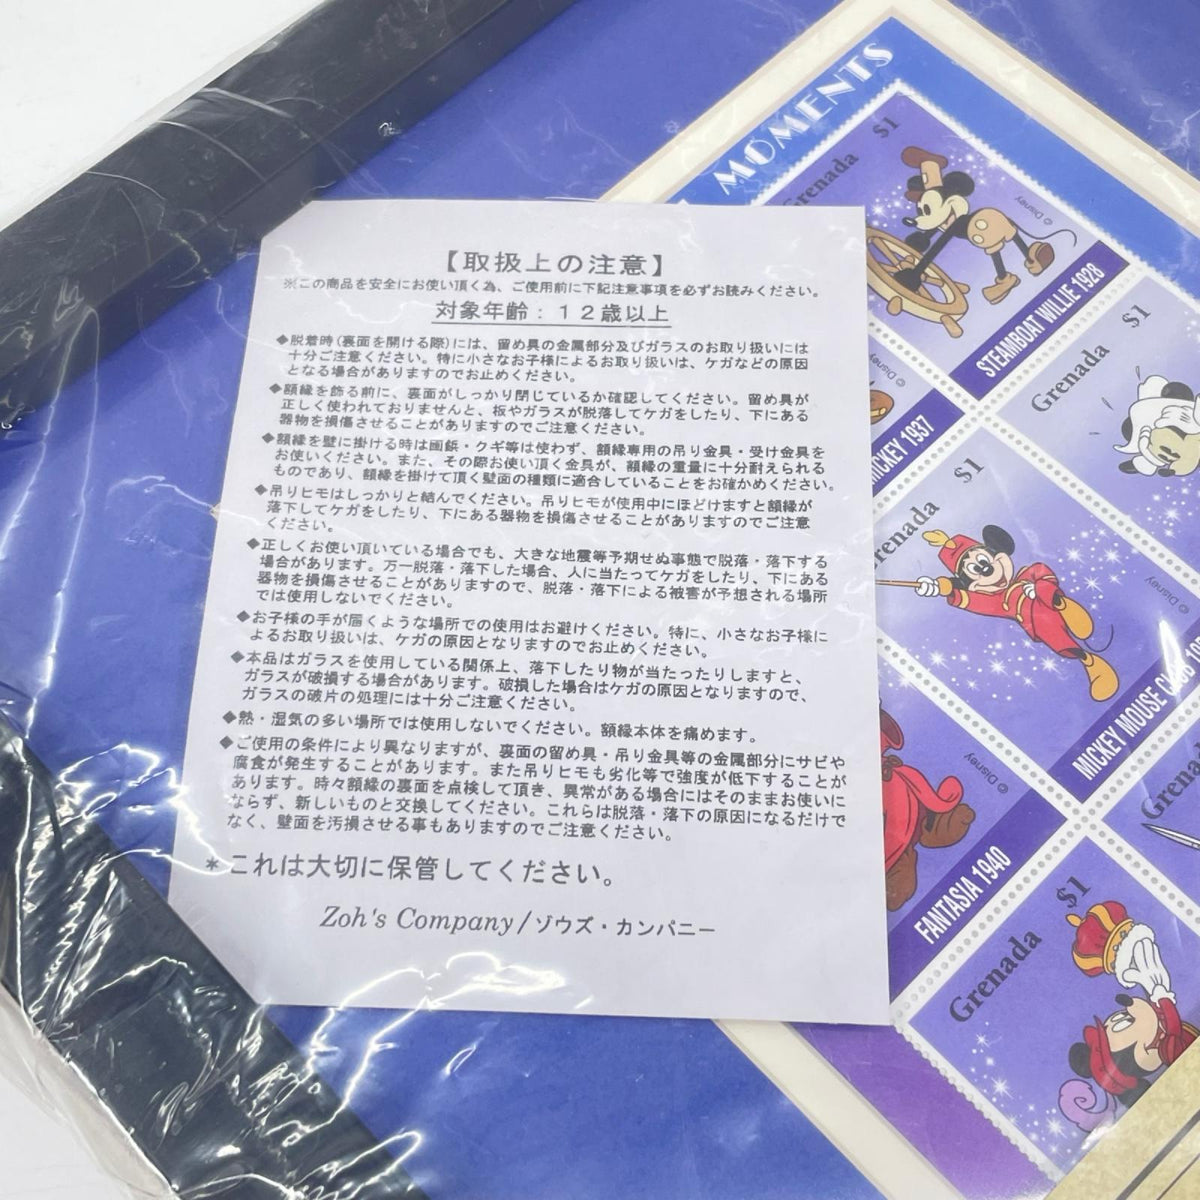 【取扱上の注意】
※この商品を安全にお使い頂く為、ご使用前に下記注意事項を必ずお読みください。
対象年齢：１２歳以上
◆脱着時(裏面を開ける際)には、留め具の金属部分及びガラスのお取り扱いには
十分ご注意ください。特に小さなお子様によるお取り扱いは、ケガなどの原因
となる場合がありますのでお止めください。
◆額縁を飾る前に、裏面がしっかり閉じているか確認してください。留め具が
正しく使われておりませんと、板やガラスが脱落してケガをしたり、下にある
器物を損傷させることがありますのでご注意ください。
◆額縁を壁に掛ける時は画鋲・クギ等は使わず、額縁専用の吊り金具・受け金具を
お使いください。また、その際お使い頂く金具が、額縁の重量に十分耐えられる
ものであり、額縁を掛けて頂く壁面の種類に適合していることをお確かめください。
◆吊りヒモはしっかりと結んでください。吊りヒモが使用中にほどけますと額縁が
落下してケガをしたり、下にある器物を損傷させることがありますのでご注意
ください。
◆正しくお使い頂いている場合でも、大きな地震等予期せぬ事態で脱落・落下する
場合があります。万一脱落・落下した場合、人に当たってケガをしたり、下にある
器物を損傷させることがありますので、脱落・落下による被害が予想される場所
では使用しないでください。
◆お子様の手が届くような場所での使用はお避けください。特に、小さなお子様に
よるお取り扱いは、ケガの原因となりますのでお止めください。
◆本品はガラスを使用している関係上、落下したり物が当たったりしますと、
ガラスが破損する場合があります。破損した場合はケガの原因となりますので、
ガラスの破片の処理には十分ご注意ください。
◆熱・湿気の多い場所では使用しないでください。額縁本体を痛めます。
◆ご使用の条件により異なりますが、裏面の留め具・吊り金具等の金属部分にサビや
腐食が発生することがあります。また吊りヒモも劣化等で強度が低下することが
あります。時々額縁の裏面を点検して頂き、異常がある場合にはそのままお使いに
ならず、新しいものと交換してください。これらは脱落・落下の原因になるだけで
なく、壁面を汚損させる事もありますのでご注意ください。
＊これは大切に保管してください。
Zoh's Company/ゾウズ・カンパニー
MOMENTS
$1
Grenada
© Disney
STEAMBOAT WILLIE 1928
$1
Grenada
© Disney
MICKEY 1937
$1
Grenada
© Disney
MICKEY MOUSE CLUB
© Disney
FANTASIA 1940
Grenada
$1
Grenada